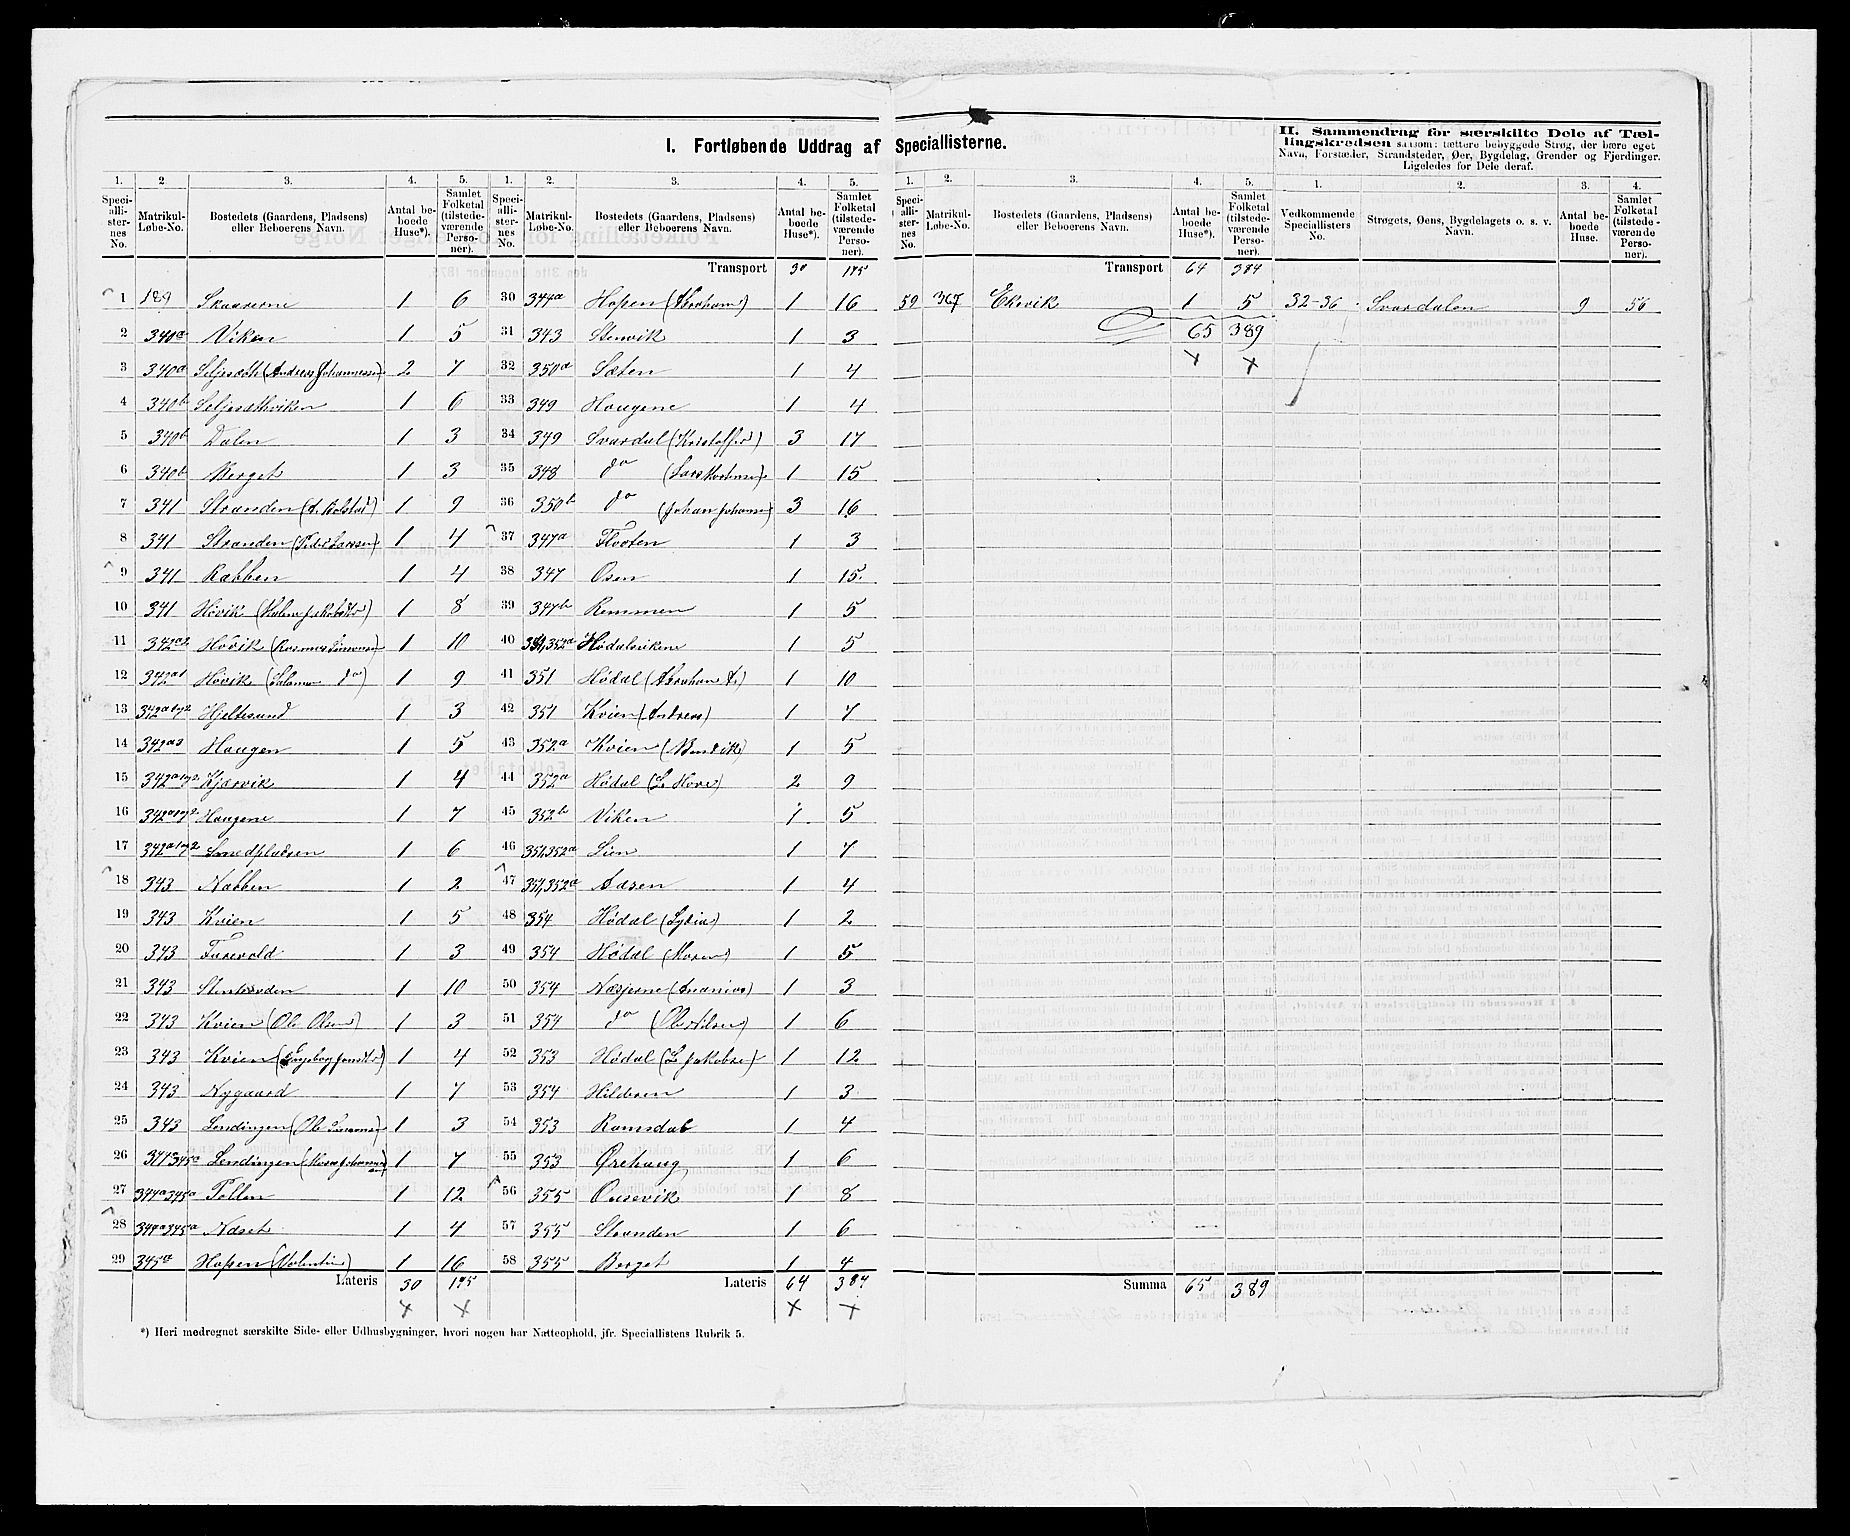 I. Fortløbende Uddrag af Speciallisterne.
II. Sammendrag for særskilte Dele af Tællingskredsen saasom: tættere bebyggede Strøg, der bære eget Navn, Forstæder, Strandsteder, Øer, Bygdelag, Grender og Fjerdinger. Ligeledes for Dele deraf.
1. 2 3. 4. 5. 1. 2. 3. 4. 5. 1. 2. 3. 4. 5. 1. 2. 3. 4.
Speciallisternes No. Matrikul-Løbe-No. Bostedets (Gaardens, Pladsens) eller Beboerens Navn. Antal beboede Huse*). Samlet Folketal (tilstedeværende Personer).
Speciallisternes No. Matrikul-Løbe-No. Bostedets (Gaardens, Pladsens) eller Beboerens Navn. Antal beboede Huse*). Samlet Folketal (tilstedeværende Personer).
Speciallisternes No. Matrikul-Løbe-No. Bostedets (Gaardens, Pladsens) eller Beboerens Navn. Antal beboede Huse*). Samlet Folketal (tilstedeværende Personer).
Vedkommende Speciallisters No. Strøgets, Øens, Bygdelagets o. s. v. Navn. Antal beboede Huse. Samlet Folketal (tilstedeværende Personer).
1 189 Skaarene 1 6
2 340a Viken 1 5
3 340a Seljesæth (Andreas Johannessen) 2 7
4 340b Seljesæthviken 1 6
5 340b Dalen 1 3
6 340b Berget 1 3
7 341 Stranden (A. Bolstad) 1 9
8 341 Stranden (Peder Larsen) 1 4
9 341 Rabben 1 4
10 341 Høvik 1 8
11 342a2 Høvik (Rasmus Simonsen) 1 10
12 342a1 Høvik (Salomon do) 1 9
13 342a1og2 Hjeltesund 1 3
14 342a3 Haugen 1 5
15 342a1og2 Kjærvik 1 4
16 342a1og2 Haugene 1 7
17 342a1og2 Smedpladsen 1 6
18 343 Nabben 1 2
19 343 Kvien 1 5
20 343 Furevold 1 3
21 343 10
22 343 Kvien (Ole Olsen) 1 3
23 343 Kvien 1 4
24 343 Nygaard 1 7
25 343 Lendingen (Ole Simonsen) 1 3
26 344a345a Lendingen 1 7
27 344a345a Tollen 1 12
28 344a345a Næset 1 4
29 345a Hopen (Valentin) 1 16
Lateris 30 175
Transport 30 175
30 344a Hopen (Abraham) 1 16
31 343 Stenvik 1 3
32 350a Sæten 1 4
33 349 Haugene 1 4
34 349 Svardal (Kristoffer) 3 17
35 348 do 1 15
36 350b do (Johan Johans) 3 16
37 347a Floten 1 3
38 347 Osen 1 15
39 347b Remmen 1 5
40 351,352a Hødalsvikene 1 5
41 351 Hødal (Abraham A.) 1 10
42 351 Kvien (Andreas) 1 7
43 352a Kvien (Bendik) 1 5
44 352a Hødal (L. Hove) 2 9
45 352b Viken 1 5
46 351,352a Lien 1 7
47 351,352a Aasen 1 4
48 354 Hødal (Lydia) 1 2
49 354 Hødal 1 5
50 354 Næsjerne (Ananias) 1 3
51 354 do (Ole Nilsen) 1 6
52 353 Hødal (L. Jakobsen) 1 12
53 354 Hilderen 1 3
54 353 Ramsdal 1 4
55 353 Ørehaug 1 6
56 355 8
57 355 Stranden 1 6
58 355 Berget 1 4
Lateris 64 384
Transport 64 384
59 367 Ekevik 1 5
65 389
Summa 65 389
32-36 Svardalen 9 56
*) Heri medregnet særskilte Side- eller Udhusbygninger, hvori nogen har Natteophold, jfr. Speciallistens Rubrik 5.